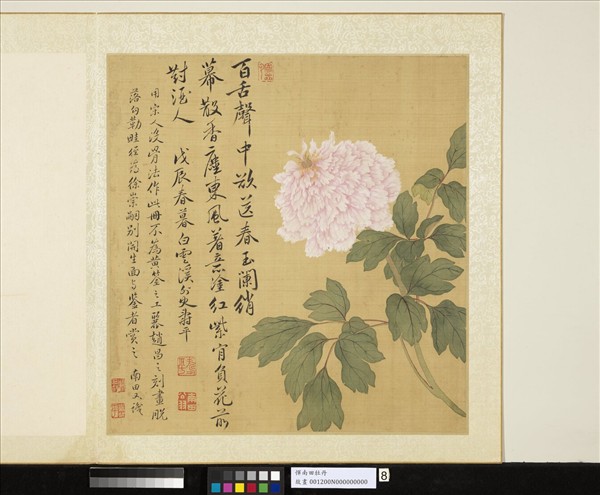 百舌聲中欲送春玉闌綃
幕散香塵東風著意塗紅紫肯負花前
對酒人 戊辰春暮白雲溪外史壽平
用宋人沒骨法作此冊不為黃筌之工麗趙昌之刻畫脫
落勾勒畦徑為徐崇嗣別開生面與鑒者賞之 南田又識
惲南田牡丹
故畫 001200N000000000
8